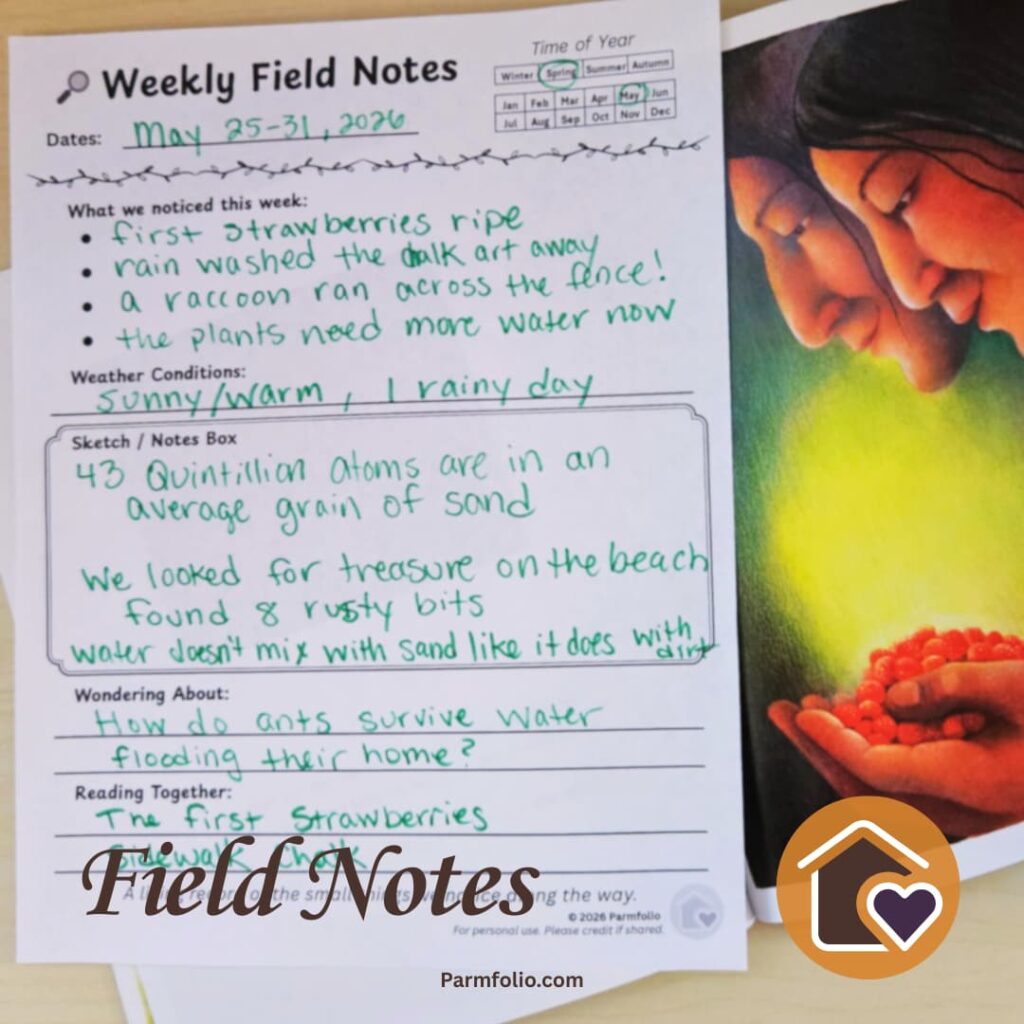 Weekly Field Notes
Time of Year
Winter Spring Summer Autumn
Jan Feb Mar Apr May Jun
Jul Aug Sep Oct Nov Dec
Dates: May 25-31, 2026
What we noticed this week:
• first strawberries ripe
• rain washed the chalk art away
• a raccoon ran across the fence!
• the plants need more water now
Weather Conditions:
sunny/warm, 1 rainy day
Sketch / Notes Box
43 Quintillian atoms are in an
average grain of sand
We looked for treasure on the beach
found 8 rusty bits
water doesn't mix with sand like it does with
dirt
Wondering About:
How do ants survive water
flooding their home?
Reading Together:
The First Strawberries
Sidewalk Chalk
Field Notes
A living record of the small things we notice along the way.
© 2026 Parmfolio
For personal use. Please credit if shared.
Parmfolio.com